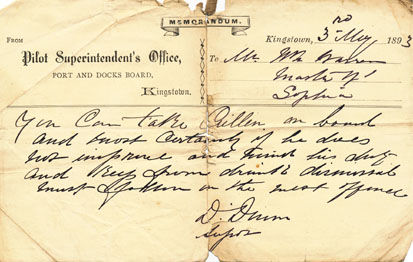 MEMORANDUM.
Kingstown, 3rd May, 1893
FROM
Pilot Superintendent's Office,
PORT AND DOCKS BOARD,
Kingstown.
To Mr Wm
Master of
Sophia
You can take Cullen on board
and most certainly if he does
not improve and mind his duty
and keep from drink dismissal
must follow on the next offence
D. Dunn
Supt